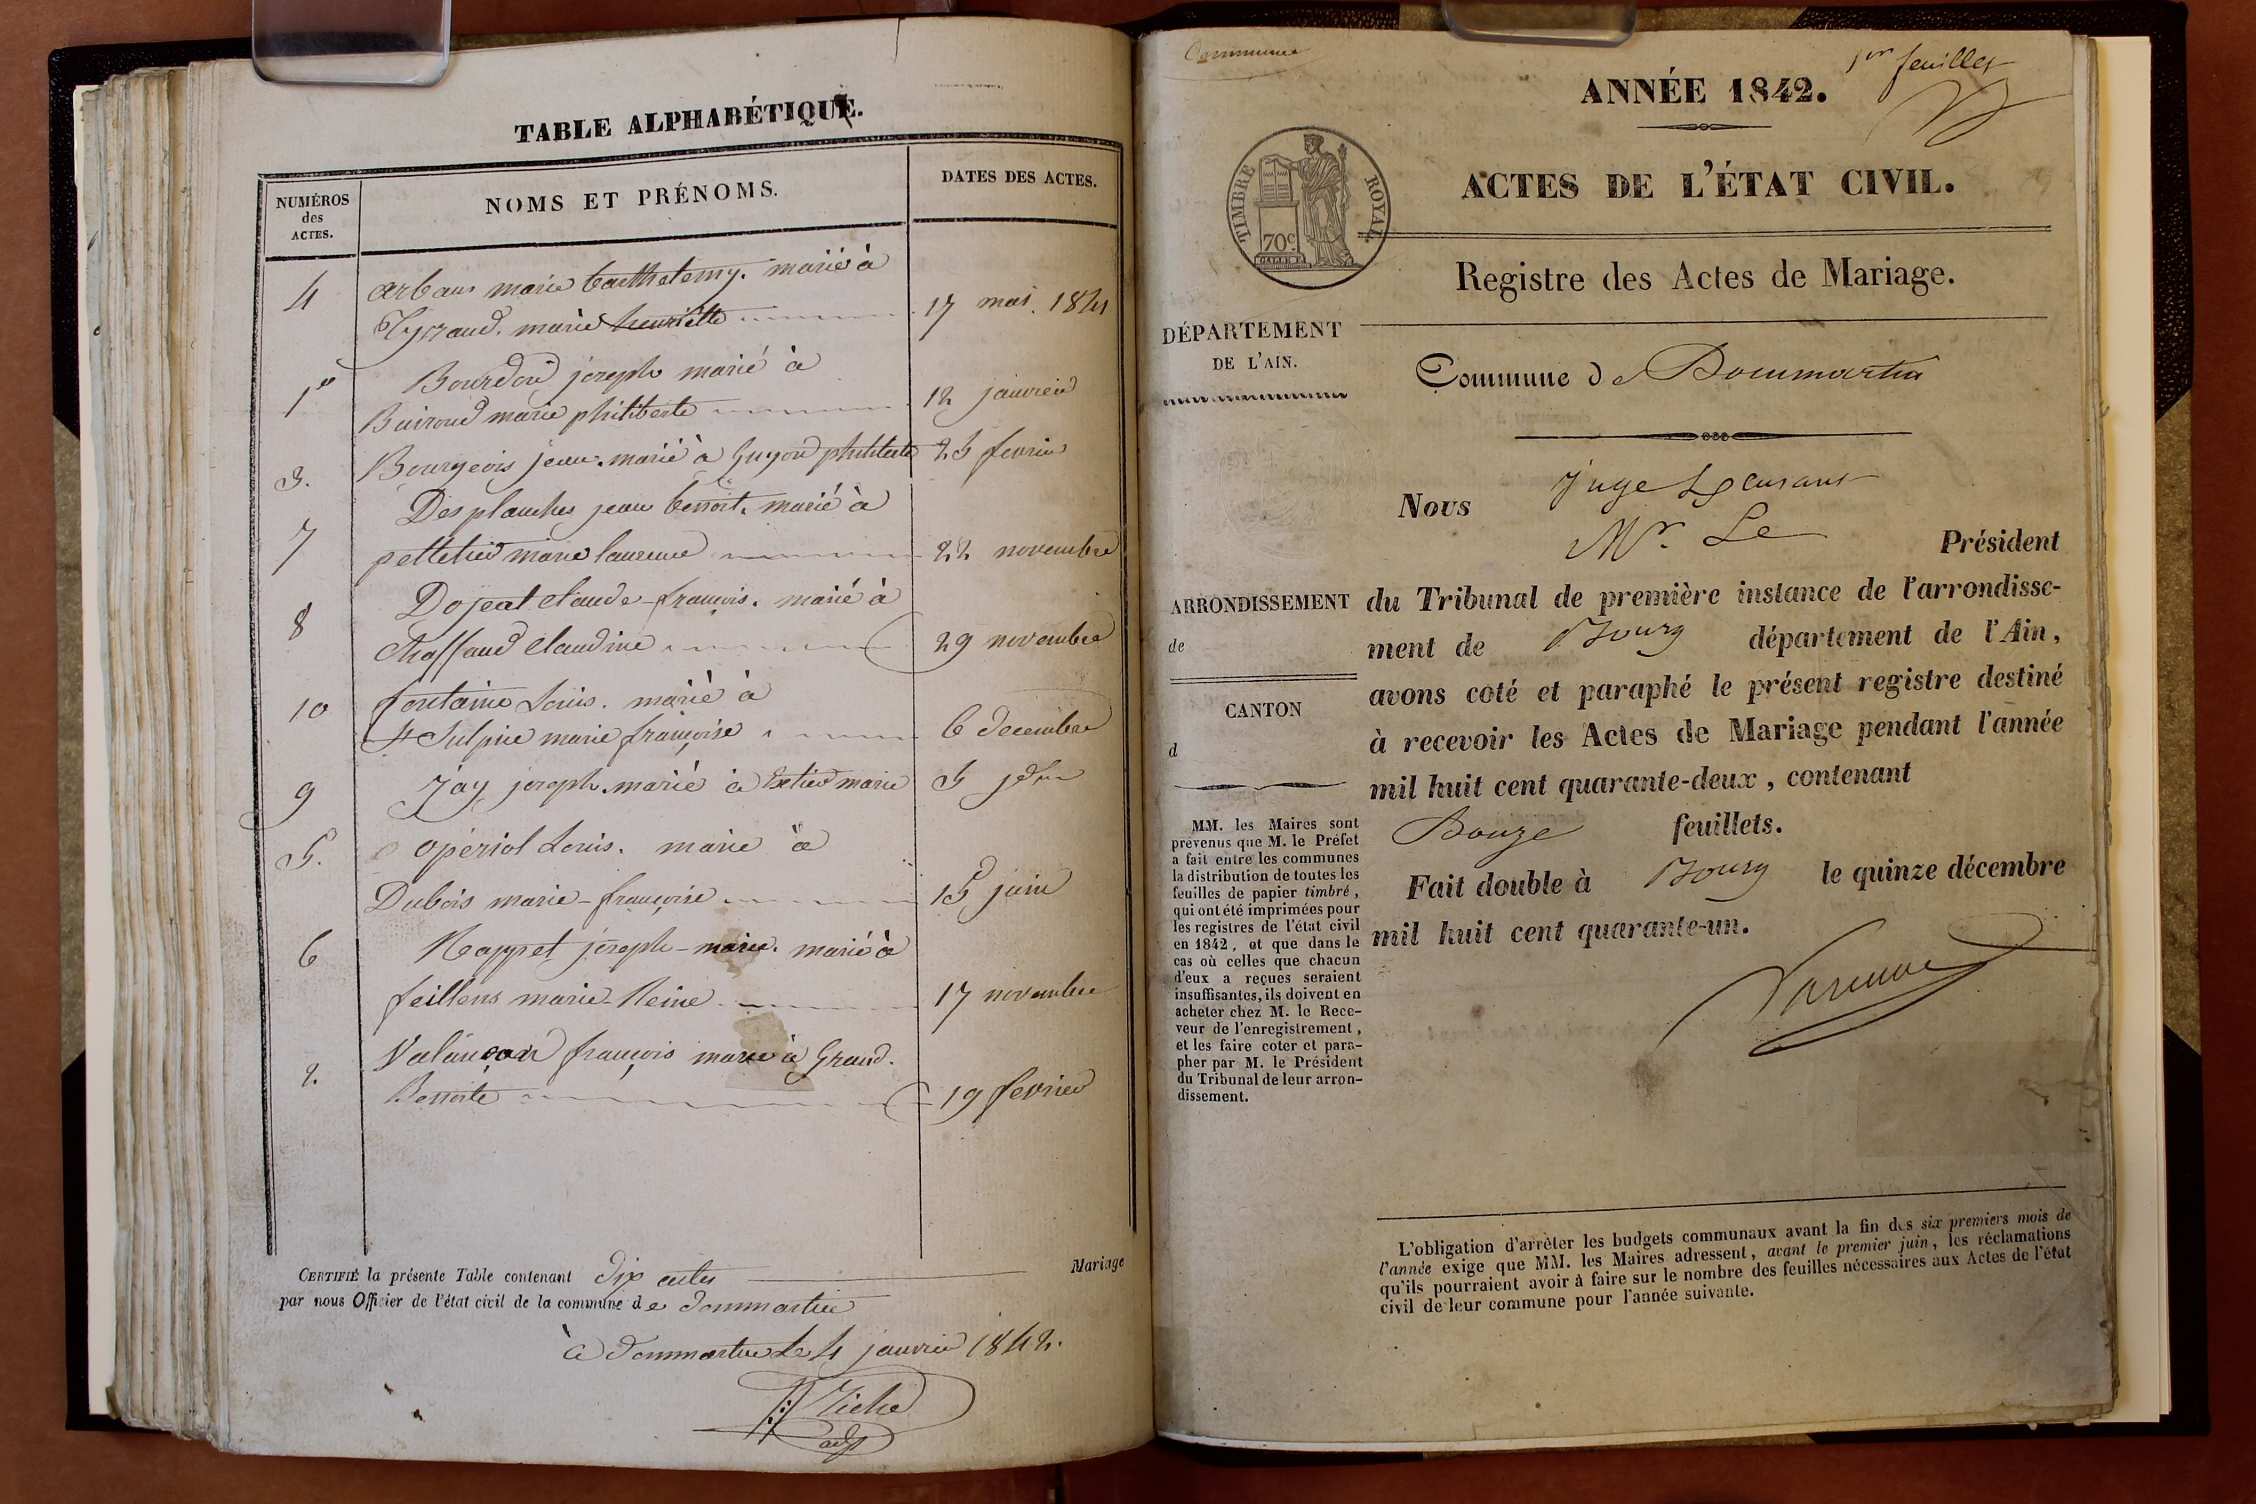 TABLE ALPHABÉTIQUE.
NUMÉROS
des
ACTES.
NOMS ET PRÉNOMS.
DATES DES ACTES.
4 arbau marie barthelemy. marié à
marie henriette 17 mai. 1841
1er Bourdon joseph marié à
Buiroud marie philiberte 12 janvier
3. Bourgeois jean. marié à Guyon philiberte 25 fevrier
Desplanches jean benoit. marié à
7 pelletier marie laurence 22 novembre
8 Dojeat claude-françois. marié à
Chaffaud claudine 29 novembre
10 fontaine Louis. marié à
St Sulpice marie françoise 6 decembre
9 Jay joseph. marié à marie 5 jdem
5. opériol Louis. marié à
Dubois marie-françoise 15 juin
6 Rappet joseph-marie. marié à
feillens marie-Reine 17 novembre
2. Valançon françois marié à Grand.
Benoite 19 fevrier
CERTIFIÉ la présente Table contenant dix actes
par nous Officier de l'état civil de la commune de dommartin
à dommartin le 4 janvier 1842.
Mariage
Commune
1er feuillet
ANNÉE 1842.
TIMBRE ROYAL
70c
ACTES DE L'ÉTAT CIVIL.
Registre des Actes de Mariage.
DÉPARTEMENT
DE L'AIN.
Commune de Dommartin
Juge
Nous Mr. Le Président
ARRONDISSEMENT
de
CANTON
d
du Tribunal de première instance de l'arrondisse-
ment de Bourg département de l'Ain,
avons coté et paraphé le présent registre destiné
à recevoir les Actes de Mariage pendant l'année
mil huit cent quarante-deux, contenant
Douze feuillets.
Fait double à Bourg le quinze décembre
mil huit cent quarante-un.
MM. les Maires sont
prévenus que M. le Préfet
a fait entre les communes
la distribution de toutes les
feuilles de papier timbré,
qui ont été imprimées pour
les registres de l'état civil
en 1842, et que dans le
cas où celles que chacun
d'eux a reçues seraient
insuffisantes, ils doivent en
acheter chez M. le Rece-
veur de l'enregistrement,
et les faire coter et para-
pher par M. le Président
du Tribunal de leur arron-
dissement.
L'obligation d'arrêter les budgets communaux avant la fin des six premiers mois de
l'année exige que MM. les Maires adressent, avant le premier juin, les réclamations
qu'ils pourraient avoir à faire sur le nombre des feuilles nécessaires aux Actes de l'état
civil de leur commune pour l'année suivante.